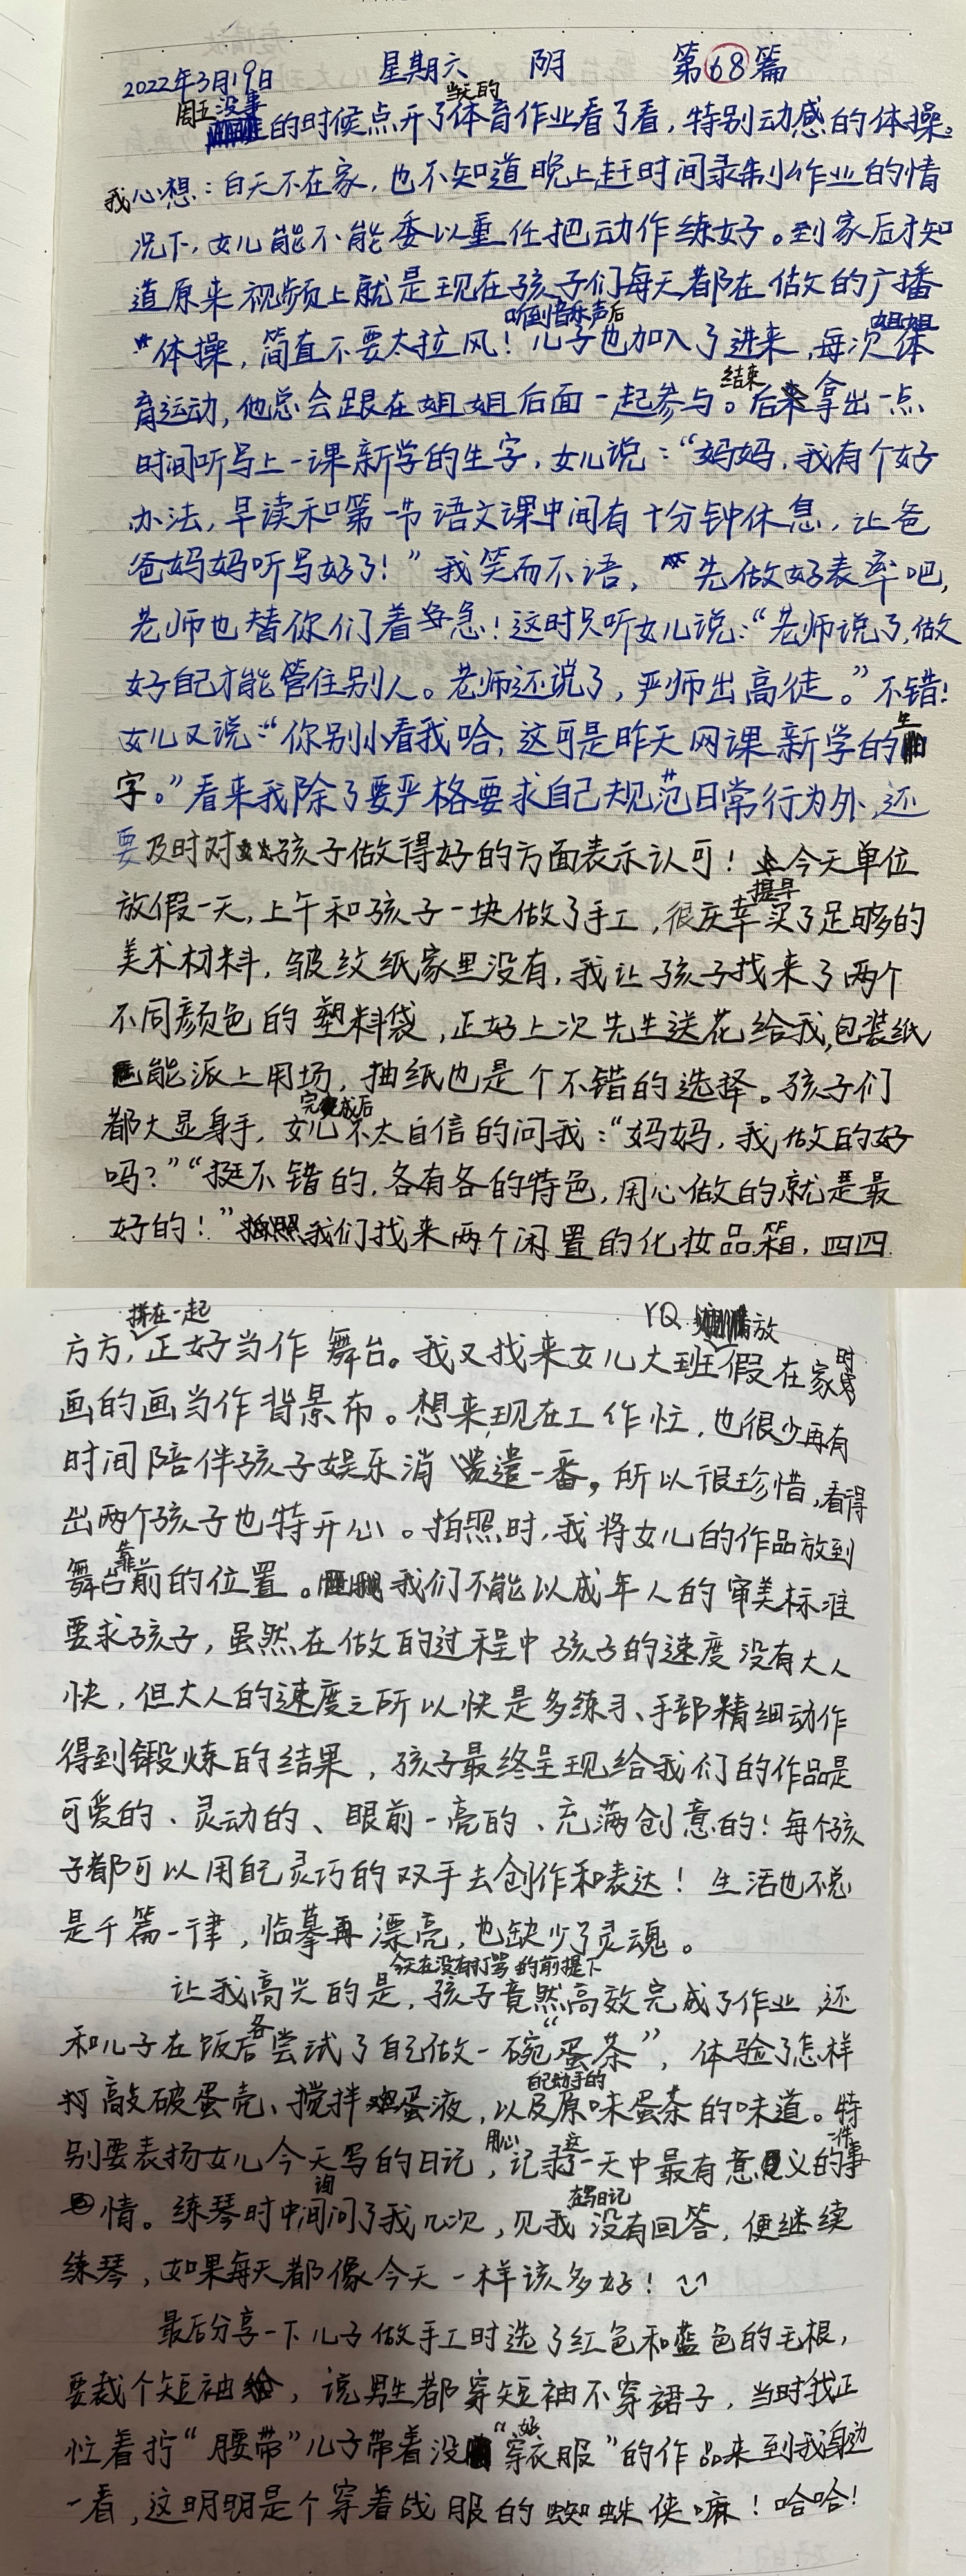 2022年3月19日 星期六 阴 第68篇
周五没事的时候点开了当天的体育作业看了看,特别动感的体操。
我心想:白天不在家,也不知道晚上赶时间录制作业的情
况下,女儿能不能委以重任把动作练好。到家后才知
道原来视频上就是现在孩子们每天都在做的广播
体操,简直不要太拉风!听到音乐声后儿子也加入了进来,每次姐姐体
育运动,他总会跟在姐姐后面一起参与。结束后拿出一点
时间听写上一课新学的生字,女儿说:“妈妈,我有个好
办法,早读和第一节语文课中间有十分钟休息,让爸
爸妈妈听写好了!”我笑而不语,先做好表率吧,
老师也替你们着急!这时只听女儿说:“老师说了,做
好自己才能管住别人。老师还说了,严师出高徒。”不错!
女儿又说:“你别小看我哈,这可是昨天网课新学的生
字。”看来我除了要严格要求自己规范日常行为外,还
要及时对孩子做得好的方面表示认可!今天单位
放假一天,上午和孩子一块做了手工,很庆幸提早买了足够的
美术材料,皱纹纸家里没有,我让孩子找来了两个
不同颜色的塑料袋,正好上次先生送花给我,包装纸
能派上用场,抽纸也是个不错的选择。孩子们
都大显身手,完成后女儿不太自信的问我:“妈妈,我做的好
吗?”“挺不错的,各有各的特色,用心做的就是最
好的!”我们找来两个闲置的化妆品箱,四四
方方,拼在一起正好当作舞台。我又找来女儿大班YQ放假在家时
画的画当作背景布。想来现在工作忙,也很少再有
时间陪伴孩子娱乐消遣一番,所以很珍惜,看得
出两个孩子也特开心。拍照时,我将女儿的作品放到
舞台靠前的位置。我们不能以成年人的审美标准
要求孩子,虽然在做的过程中孩子的速度没有大人
快,但大人的速度之所以快是多练习、手部精细动作
得到锻炼的结果,孩子最终呈现给我们的作品是
可爱的、灵动的、眼前一亮的、充满创意的!每个孩
子都可以用自己灵巧的双手去创作和表达!生活也不总
是千篇一律,临摹再漂亮,也缺少了灵魂。
让我高兴的是,今天在没有打骂的前提下孩子竟然高效完成了作业,还
和儿子在饭后各尝试了自己做一碗“蛋茶”,体验了怎样
敲破蛋壳、搅拌蛋液,以及自己动手的原味蛋茶的味道。特
别要表扬女儿今天写的日记,用心记录了这一天中最有意义的一件事
情。练琴时中间询问了我几次,见我在写日记没有回答,便继续
练琴,如果每天都像今天一样该多好!
最后分享一下儿子做手工时选了红色和蓝色的毛根,
要裁个短袖,说男生都穿短袖不穿裙子,当时我正
忙着拧“腰带”儿子带着没“穿好衣服”的作品来到我身边
一看,这明明是个穿着战服的蜘蛛侠嘛!哈哈!